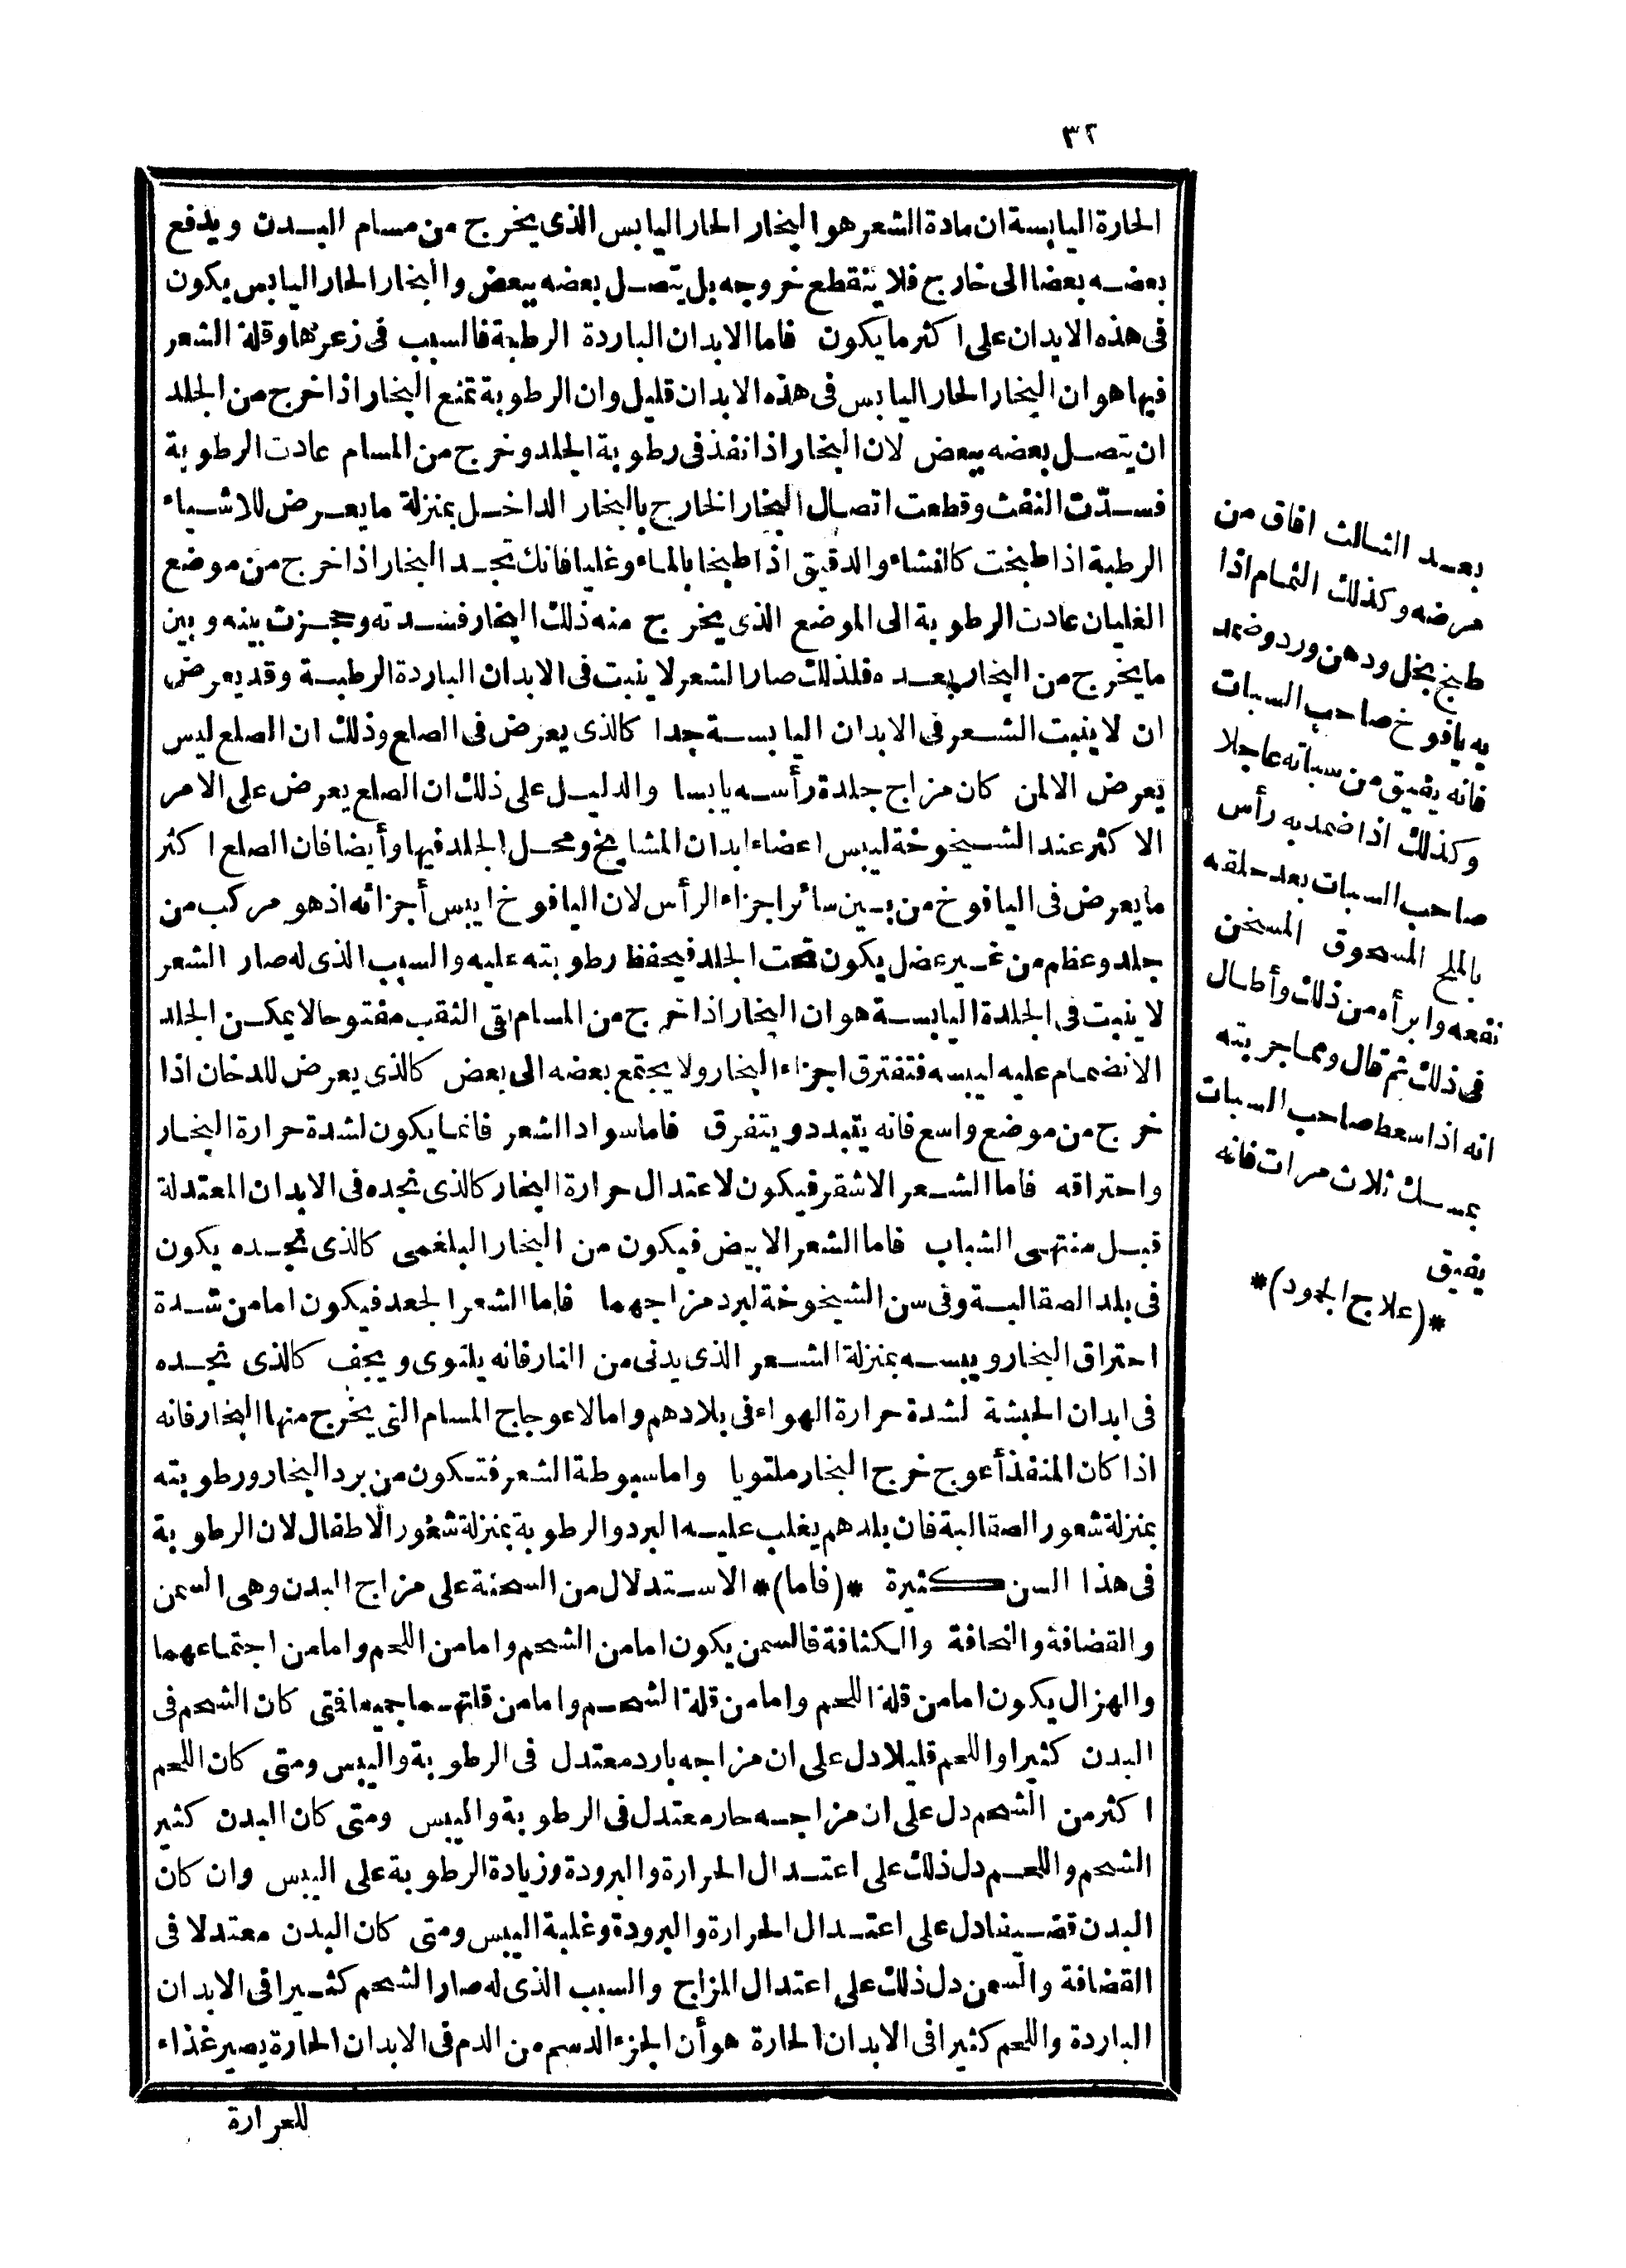 ٣٢
الحارة اليابسة ان مادة الشعر هو البخار الحار اليابس الذى يخرج من مسام البدن ويدفع
بعضه بعضا الى خارج فلا ينقطع خروجه بل يتصل بعضه ببعض والبخار الحار اليابس يكون
فى هذه الابدان على اكثر ما يكون فاما الابدان الباردة الرطبة فالسبب فى زعرها وقلة الشعر
فيها هو ان البخار الحار اليابس فى هذه الابدان قليل وان الرطوبة تمنع البخار اذا خرج من الجلد
ان يتصل بعضه ببعض لان البخار اذا نفذ فى رطوبة الجلد وخرج من المسام عادت الرطوبة
فسدّت الثقب وقطعت اتصال البخار الخارج بالبخار الداخل بمنزلة ما يعرض للاشياء
الرطبة اذا طبخت كالنشاء والدقيق اذا طبخا بالماء وغليا فانك تجد البخار اذا خرج من موضع
الغليان عادت الرطوبة الى الموضع الذى يخرج منه ذلك البخار فسدته وحجزت بينه وبين
ما يخرج من البخار بعده فلذلك صار الشعر لا ينبت فى الابدان الباردة الرطبة وقد يعرض
ان لا ينبت الشعر فى الابدان اليابسة جدا كالذى يعرض فى الصلع وذلك ان الصلع ليس
يعرض الا لمن كان مزاج جلدة رأسه يابسا والدليل على ذلك ان الصلع يعرض على الامر
الاكثر عند الشيخوخة ليبس اعضاء ابدان المشايخ ومحل الجلد فيها وأيضا فان الصلع اكثر
ما يعرض فى اليافوخ من بين سائر اجزاء الرأس لان اليافوخ ايبس أجزائه اذ هو مركب من
جلد وعظم من غير عضل يكون تحت الجلد فيحفظ رطوبته عليه والسبب الذى له صار الشعر
لا ينبت فى الجلدة اليابسة هو ان البخار اذا خرج من المسام بقى الثقب مفتوحا لا يمكن الجلد
الانضمام عليه ليبسه فتفترق اجزاء البخار ولا يجتمع بعضه الى بعض كالذى يعرض للدخان اذا
خرج من موضع واسع فانه يتبدد ويتفرق فاما سواد الشعر فانما يكون لشدة حرارة البخار
واحتراقه فاما الشعر الاشقر فيكون لاعتدال حرارة البخار كالذى تجده فى الابدان المعتدلة
قبل منتهى الشباب فاما الشعر الابيض فيكون من البخار البلغمى كالذى تجده يكون
فى بلد الصقالبة وفى سن الشيخوخة لبرد مزاجهما فاما الشعر الجعد فيكون اما من شدة
احتراق البخار ويبسه بمنزلة الشعر الذى يدنى من النار فانه يلتوى ويجف كالذى تجده
فى ابدان الحبشة لشدة حرارة الهواء فى بلادهم واما لاعوجاج المسام التى يخرج منها البخار فانه
اذا كان المنفذ أعوج خرج البخار ملتويا واما سبوطة الشعر فتكون من برد البخار ورطوبته
بمنزلة شعور الصقالبة فان بلدهم يغلب عليه البرد والرطوبة بمنزلة شعور الاطفال لان الرطوبة
فى هذا السن كثيرة *(فاما)* الاستدلال من السحنة على مزاج البدن وهى السمن
والقضافة والنحافة والكثافة فالسمن يكون اما من الشحم واما من اللحم واما من اجتماعهما
والهزال يكون اما من قلة اللحم واما من قلة الشحم واما من قلتهما جميعا فمتى كان الشحم فى
البدن كثيرا واللحم قليلا دل على ان مزاجه بارد معتدل فى الرطوبة واليبس ومتى كان اللحم
اكثر من الشحم دل على ان مزاجه حار معتدل فى الرطوبة واليبس ومتى كان البدن كثير
الشحم واللحم دل ذلك على اعتدال الحرارة والبرودة وزيادة الرطوبة على اليبس وان كان
البدن قضيفا دل على اعتدال الحرارة والبرودة وغلبة اليبس ومتى كان البدن معتدلا فى
القضافة والسمن دل ذلك على اعتدال المزاج والسبب الذى له صار الشحم كثيرا فى الابدان
الباردة واللحم كثيرا فى الابدان الحارة هو أن الجزء الدسم من الدم فى الابدان الحارة يصير غذاء
للحرارة
بعد الثالث افاق من
مرضه وكذلك النمام اذا
طبخ بخل ودهن ورد وضمد
به يافوخ صاحب السبات
فانه يفيق من سباته عاجلا
وكذلك اذا ضمد به رأس
صاحب السبات بعد حلقه
بالملح المسحوق المسخن
نفعه وابرأه من ذلك وأطال
فى ذلك ثم قال ومما جربته
انه اذا سعط صاحب السبات
بمسك ثلاث مرات فانه
يفيق
*(علاج الجمود)*